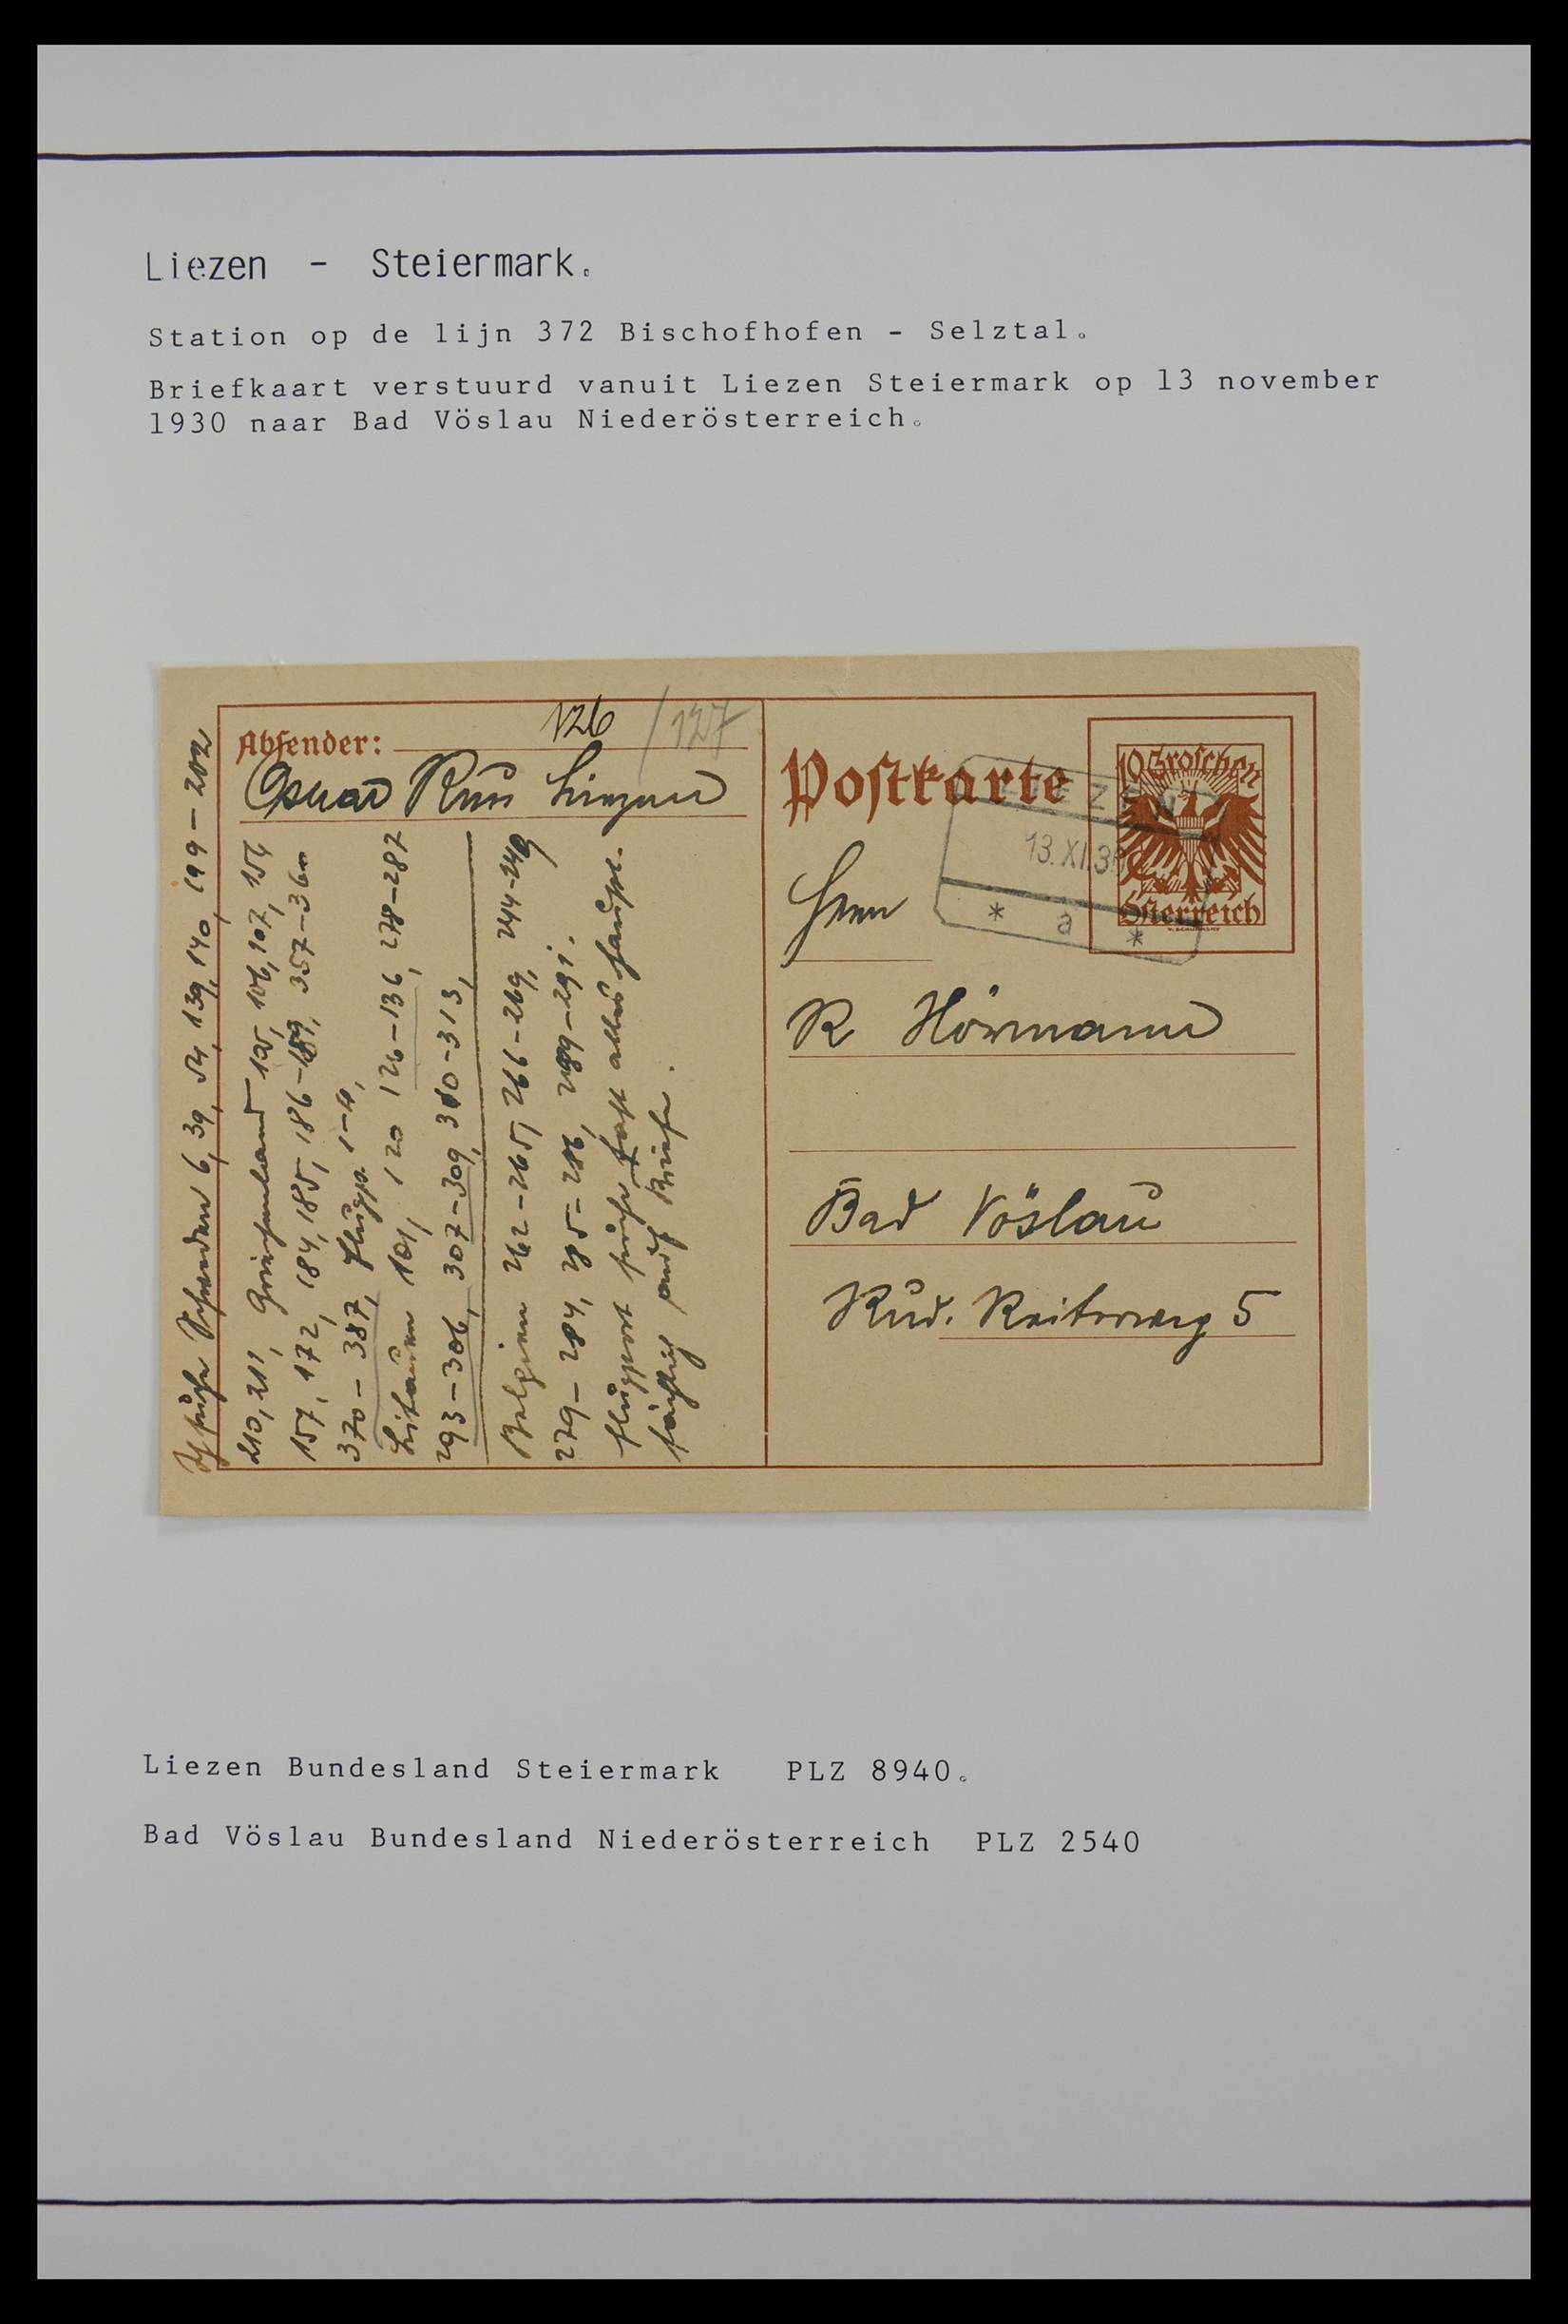 Liezen - Steiermark.
Station op de lijn 372 Bischofhofen - Selztal.
Briefkaart verstuurd vanuit Liezen Steiermark op 13 november
1930 naar Bad Vöslau Niederösterreich.
126 /127
Absender:
Oskar Liezen
Ich suche Schweden 6, 39, 54, 139, 140, 199-202
210, 211, Griechenland 105, 106, 107, 154
157, 172, 184, 185, 186-189, 357-360
370-387, Flugp. 1-4,
Litauen 101, 120 126-136, 278-287
293-306, 307-309, 310-313,
Belgien 262-265, 266-269, 244-249
279-284, 285-286, 289-291.
Flugpost suche fast alles
auch Briefe.
Postkarte
10 Groschen
Österreich
LIEZEN
13.XI.30
* a *
Herrn
R Hörmann
Bad Vöslau
Rud. Reiterweg 5
Liezen Bundesland Steiermark PLZ 8940.
Bad Vöslau Bundesland Niederösterreich PLZ 2540